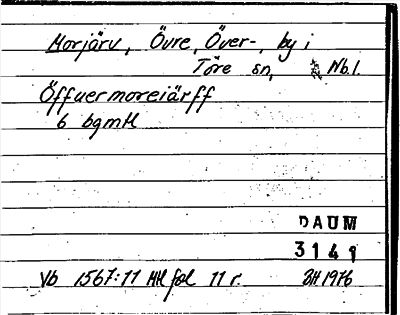 Morjärv, Övre, Över-, by i
Töre sn, Nb.l.
Öffuermoreiärff
6 bgmtl
DAUM
3149
Vb 1567:11 Htl fol 11 r. BH 1976